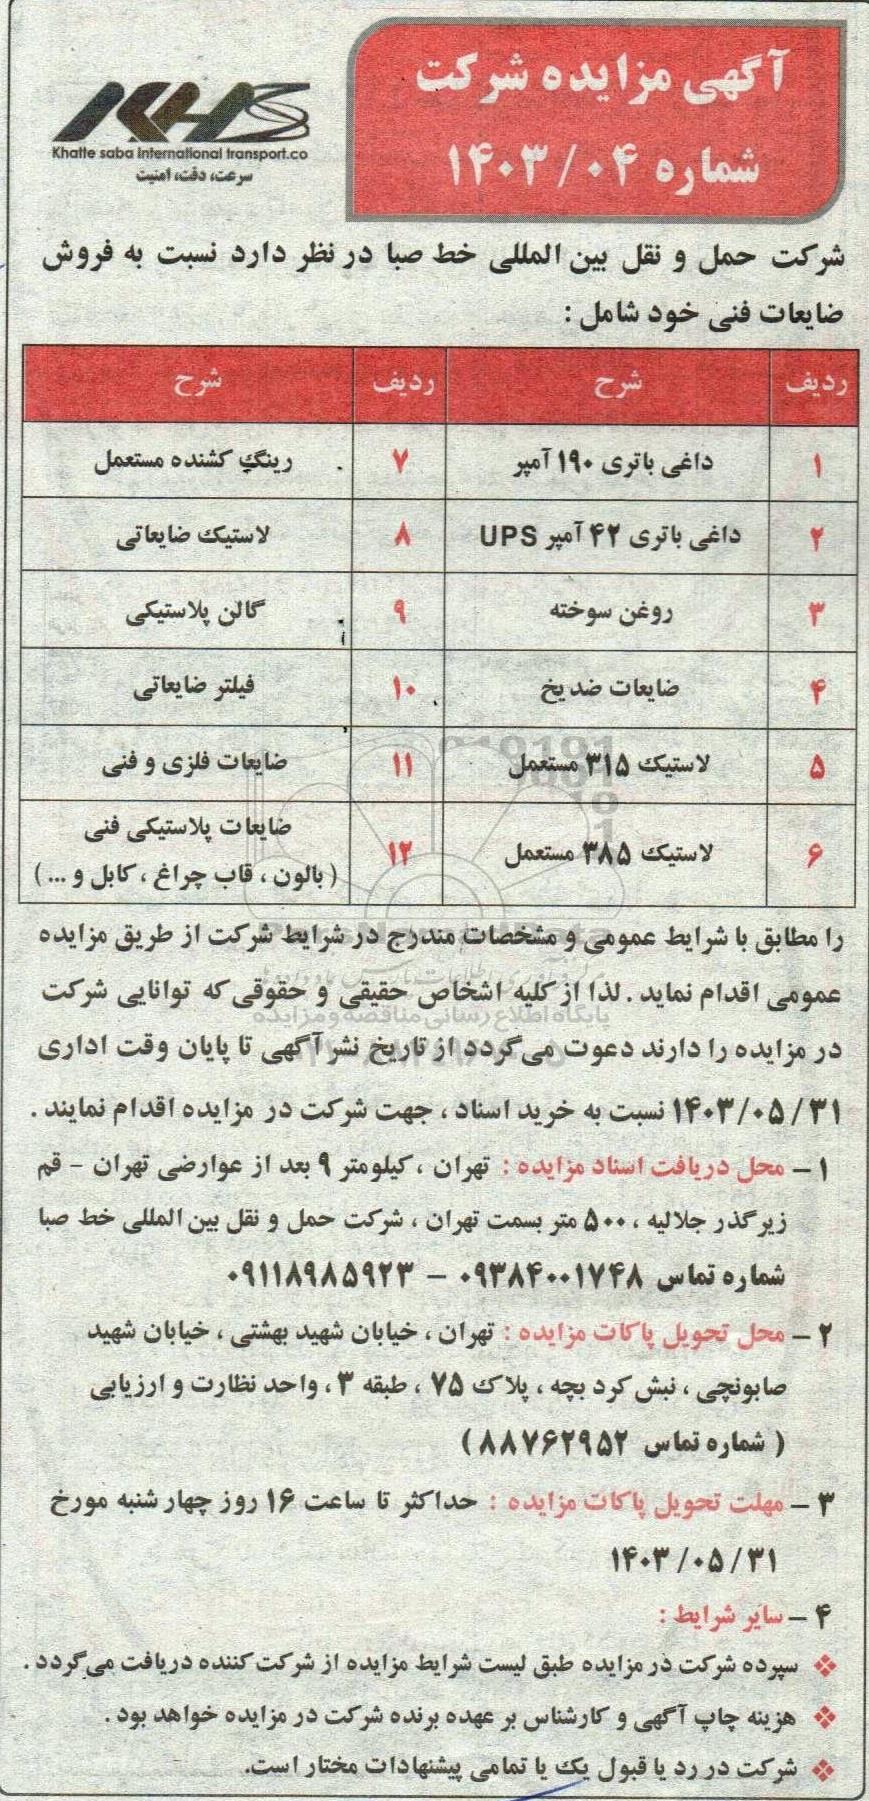 آگهی مزایده شرکت
شماره ۱۴۰۳/۰۴
Khatte saba International transport.co
سرعت، دقت، امنیت
شرکت حمل و نقل بین المللی خط صبا در نظر دارد نسبت به فروش
ضایعات فنی خود شامل :
ردیف شرح ردیف شرح
۱ داغی باتری ۱۹۰ آمپر ۷ رینگ کشنده مستعمل
۲ داغی باتری ۴۲ آمپر UPS ۸ لاستیک ضایعاتی
۳ روغن سوخته ۹ گالن پلاستیکی
۴ ضایعات ضدیخ ۱۰ فیلتر ضایعاتی
۵ لاستیک ۳۱۵ مستعمل ۱۱ ضایعات فلزی و فنی
۶ لاستیک ۳۸۵ مستعمل ۱۲ ضایعات پلاستیکی فنی
( بالون ، قاب چراغ ، کابل و ... )
را مطابق با شرایط عمومی و مشخصات مندرج در شرایط شرکت از طریق مزایده
عمومی اقدام نماید . لذا از کلیه اشخاص حقیقی و حقوقی که توانایی شرکت
در مزایده را دارند دعوت می‌گردد از تاریخ نشر آگهی تا پایان وقت اداری
۱۴۰۳/۰۵/۳۱ نسبت به خرید اسناد ، جهت شرکت در مزایده اقدام نمایند .
۱ – محل دریافت اسناد مزایده : تهران ، کیلومتر ۹ بعد از عوارضی تهران - قم
زیرگذر جلالیه ، ۵۰۰ متر بسمت تهران ، شرکت حمل و نقل بین المللی خط صبا
شماره تماس ۰۹۳۸۴۰۰۱۷۴۸ – ۰۹۱۱۸۹۸۵۹۲۳
۲ – محل تحویل پاکات مزایده : تهران ، خیابان شهید بهشتی ، خیابان شهید
صابونچی ، نبش کرد بچه ، پلاک ۷۵ ، طبقه ۳ ، واحد نظارت و ارزیابی
( شماره تماس ۸۸۷۶۲۹۵۲ )
۳ – مهلت تحویل پاکات مزایده : حداکثر تا ساعت ۱۶ روز چهار شنبه مورخ
۱۴۰۳/۰۵/۳۱
۴ – سایر شرایط :
❖ سپرده شرکت در مزایده طبق لیست شرایط مزایده از شرکت کننده دریافت می‌گردد .
❖ هزینه چاپ آگهی و کارشناس بر عهده برنده شرکت در مزایده خواهد بود .
❖ شرکت در رد یا قبول یک یا تمامی پیشنهادات مختار است.
پایگاه اطلاع رسانی مناقصه و مزایده